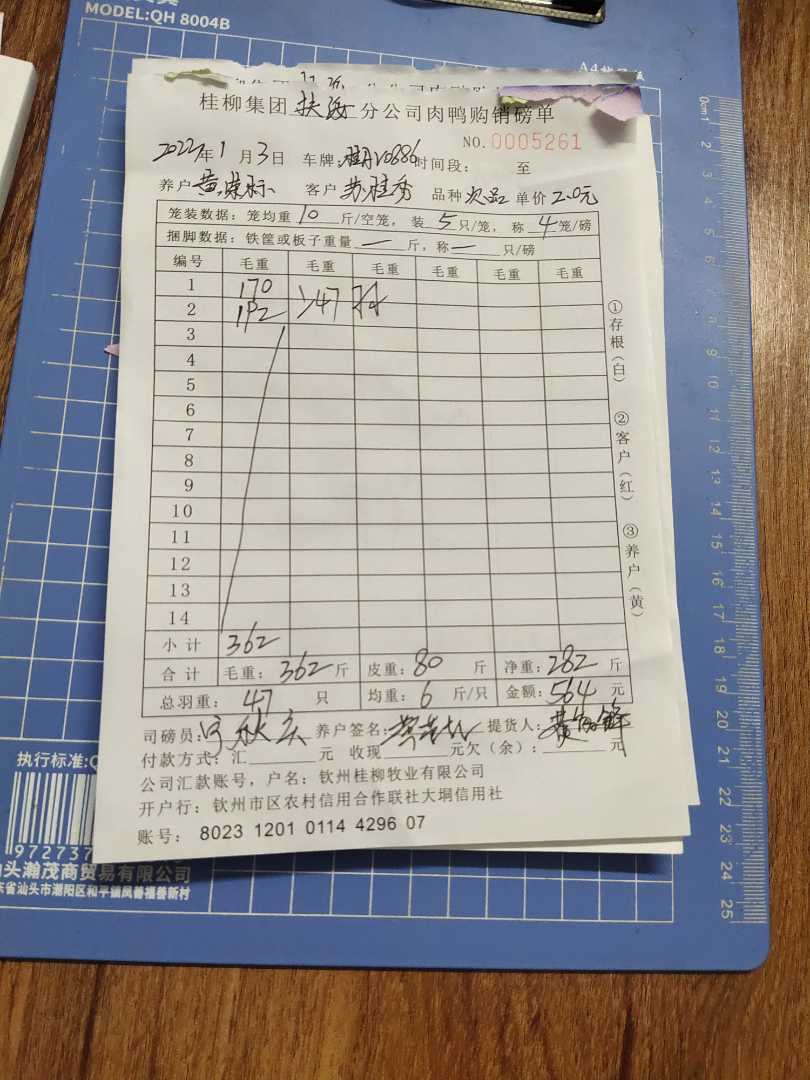 MODEL:QH 8004B
桂柳集团 分公司肉鸭购销磅单
NO.0005261
2022年1月3日 车牌: 时间段: 至
养户 客户 苏桂秀 品种 次品 单价 2.0元
笼装数据: 笼均重 10 斤/空笼, 装 5 只/笼, 称 4 笼/磅
捆脚数据: 铁筐或板子重量 一 斤, 称 一 只/磅
编号 毛重 毛重 毛重 毛重 毛重 毛重
1 170
2 192 47
3
4
5
6
7
8
9
10
11
12
13
14
小计 362
合计 毛重: 362 斤 皮重: 80 斤 净重: 282 斤
总羽重: 47 只 均重: 6 斤/只 金额: 564 元
司磅员: 养户签名: 提货人:
付款方式: 汇 元 收现 元欠(余): 元
公司汇款账号, 户名: 钦州桂柳牧业有限公司
开户行: 钦州市区农村信用合作联社大垌信用社
账号: 8023 1201 0114 4296 07
①存根(白)
②客户(红)
③养户(黄)
执行标准:Q
972737
汕头瀚茂商贸易有限公司
东省汕头市潮阳区和平镇凤善福善新村
0cm1
2
3
4
5
6
7
8
9
10
11
12
13
14
15
16
17
18
19
20
21
22
23
24
25